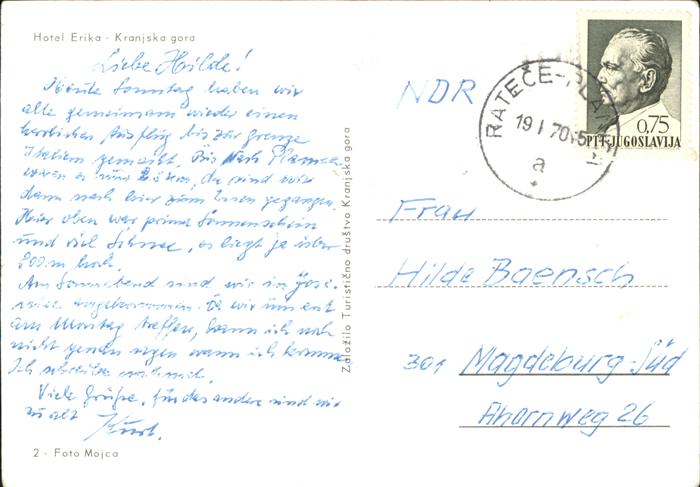 Hotel Erika - Kranjska gora
Liebe Hilde!
Heute Sonntag haben wir
alle gemeinsam wieder einen
herrlichen Ausflug bis zur Grenze
Italiens gemacht. Bis nach Planica
waren es nur km, da sind wir
dann nach hier zum Essen gegangen.
Hier oben war prima Sonnenschein
und viel Schnee, es liegt ja über
800 m hoch.
Am Sonnabend sind wir in
angekommen. Da wir uns erst
am Montag treffen, kann ich noch
nicht genau sagen wann ich komme
Ich schreibe nochmal.
Viele Grüße, für das andere sind wir
zu alt Kurt.
2 - Foto Mojca
Založilo Turistično društvo Kranjska gora
NDR
RATEČE-PLANICA
19 I 70
a
0,75
PTT JUGOSLAVIJA
Frau
Hilde Baensch
301 Magdeburg-Süd
Ahornweg 26